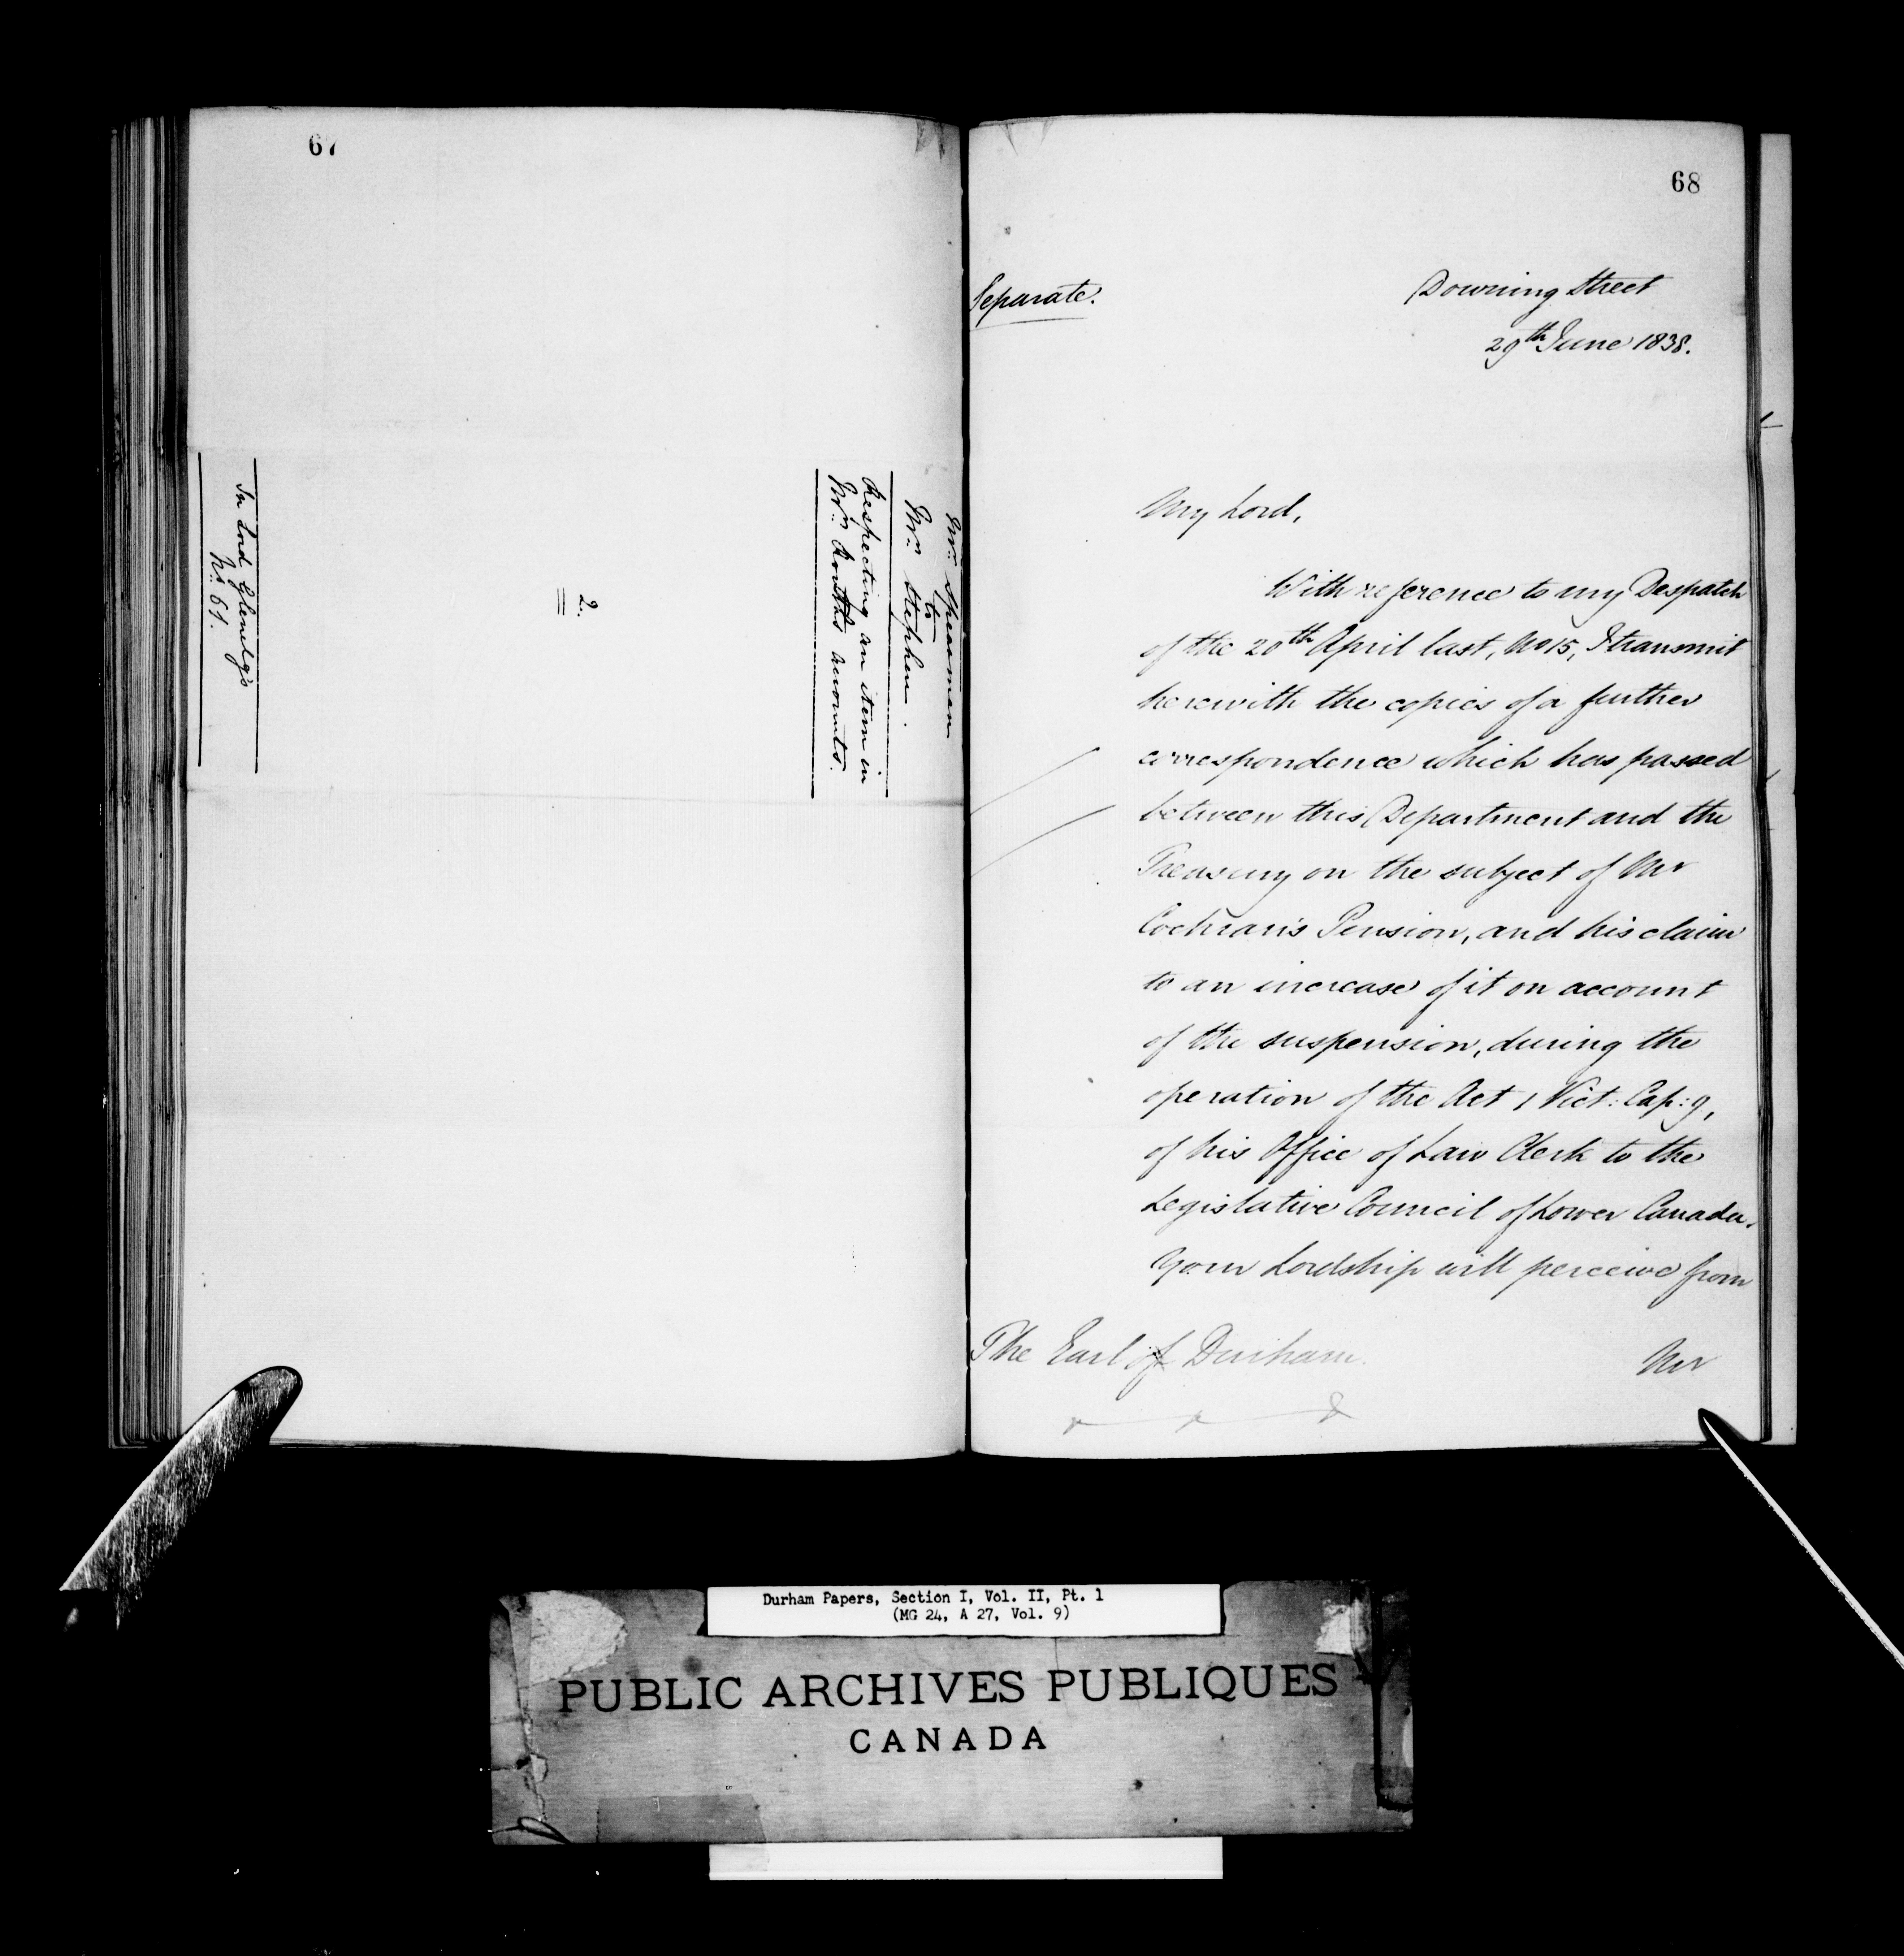 67
Mr. Spearman
to
Mr. Stephen.
Respecting an item in
Mr. Rouths accounts.
2.
In Lord Glenelg's
No. 61.
68
Separate.
Downing Street
29th June 1838.
My Lord,
With reference to my Despatch
of the 20th April last, No 15, I transmit
herewith the copies of a further
correspondence which has passed
between this Department and the
Treasury on the subject of Mr
Cochran's Pension, and his claim
to an increase of it on account
of the suspension, during the
operation of the Act 1 Vict: Cap: 9,
of his Office of Law Clerk to the
Legislative Council of Lower Canada.
Your Lordship will perceive from
The Earl of Durham.
Mr
Durham Papers, Section I, Vol. II, Pt. 1
(MG 24, A 27, Vol. 9)
PUBLIC ARCHIVES PUBLIQUES
CANADA